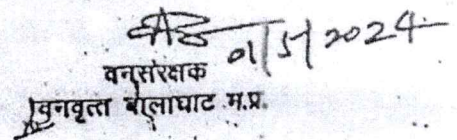 01/5/2024
वनसंरक्षक
वनवृत्त बालाघाट म.प्र.